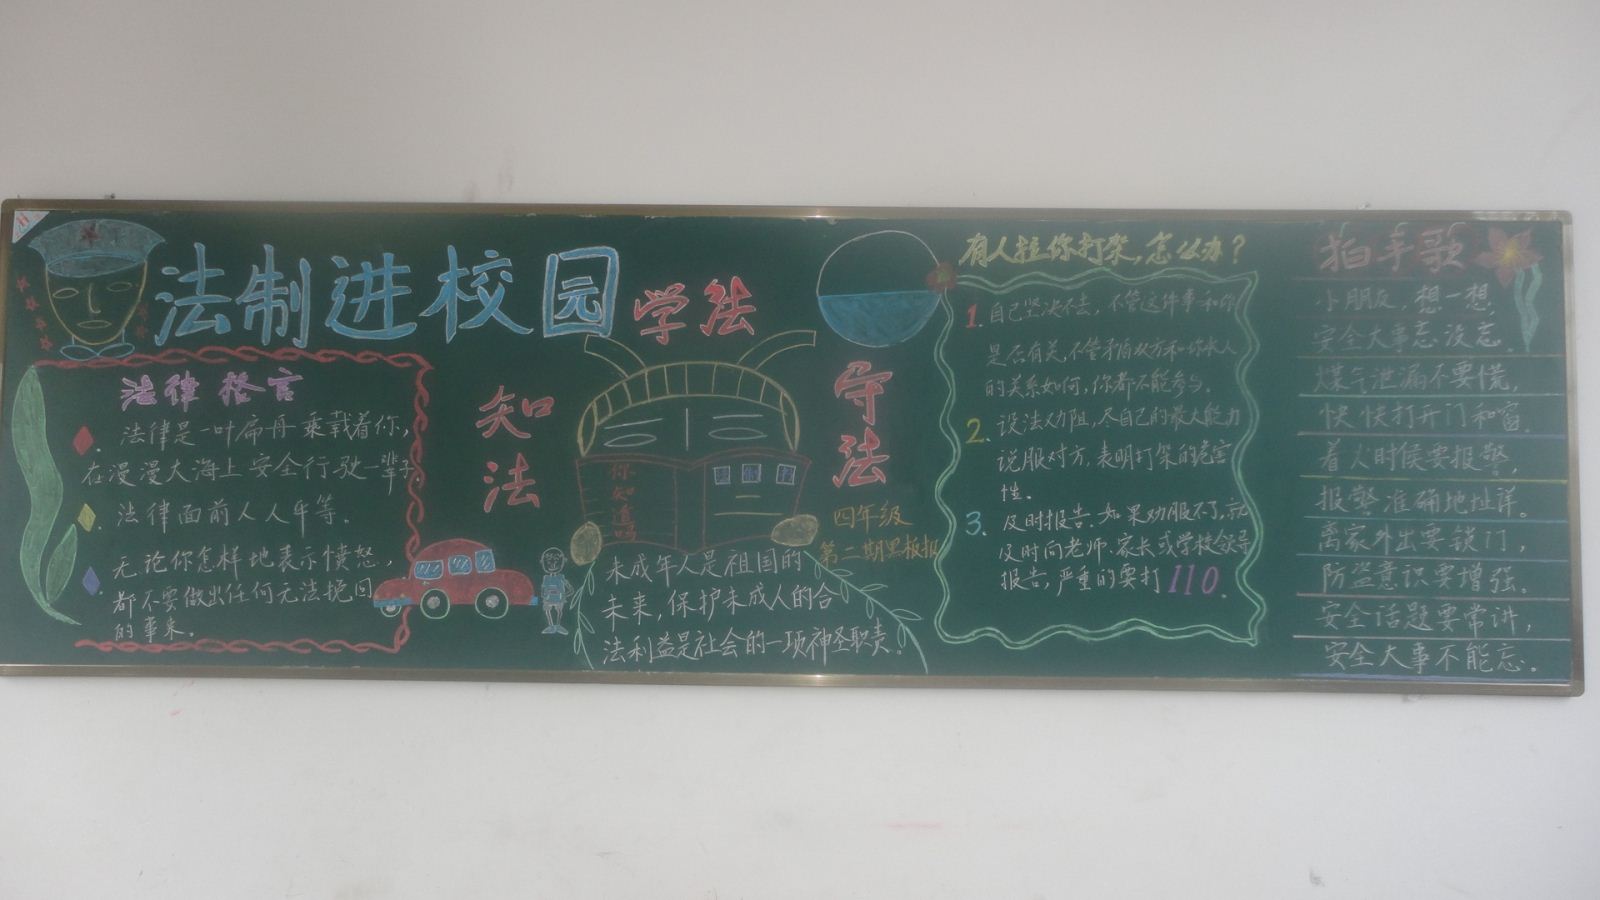 法制进校园
学法
知法
守法
法律格言
法律是一叶扁舟乘载着你,
在漫漫大海上安全行驶一辈子.
法律面前人人平等。
无论你怎样地表示愤怒,
都不要做出任何无法挽回
的事来。
你知道吗
四年级
第二期黑板报
未成年人是祖国的
未来,保护未成人的合
法利益是社会的一项神圣职责。
有人拉你打架,怎么办?
1. 自己坚决不去, 不管这件事和你
是否有关,不管矛盾双方和你本人
的关系如何,你都不能参与。
2. 设法劝阻,尽自己的最大能力
说服对方,表明打架的危害
性。
3. 及时报告.如果劝服不了,就
及时向老师.家长或学校领导
报告,严重的要打110.
拍手歌
小朋友,想一想,
安全大事忘没忘.
煤气泄漏不要慌,
快快打开门和窗.
着火时候要报警,
报警准确地址详。
离家外出要锁门,
防盗意识要增强。
安全话题要常讲,
安全大事不能忘。